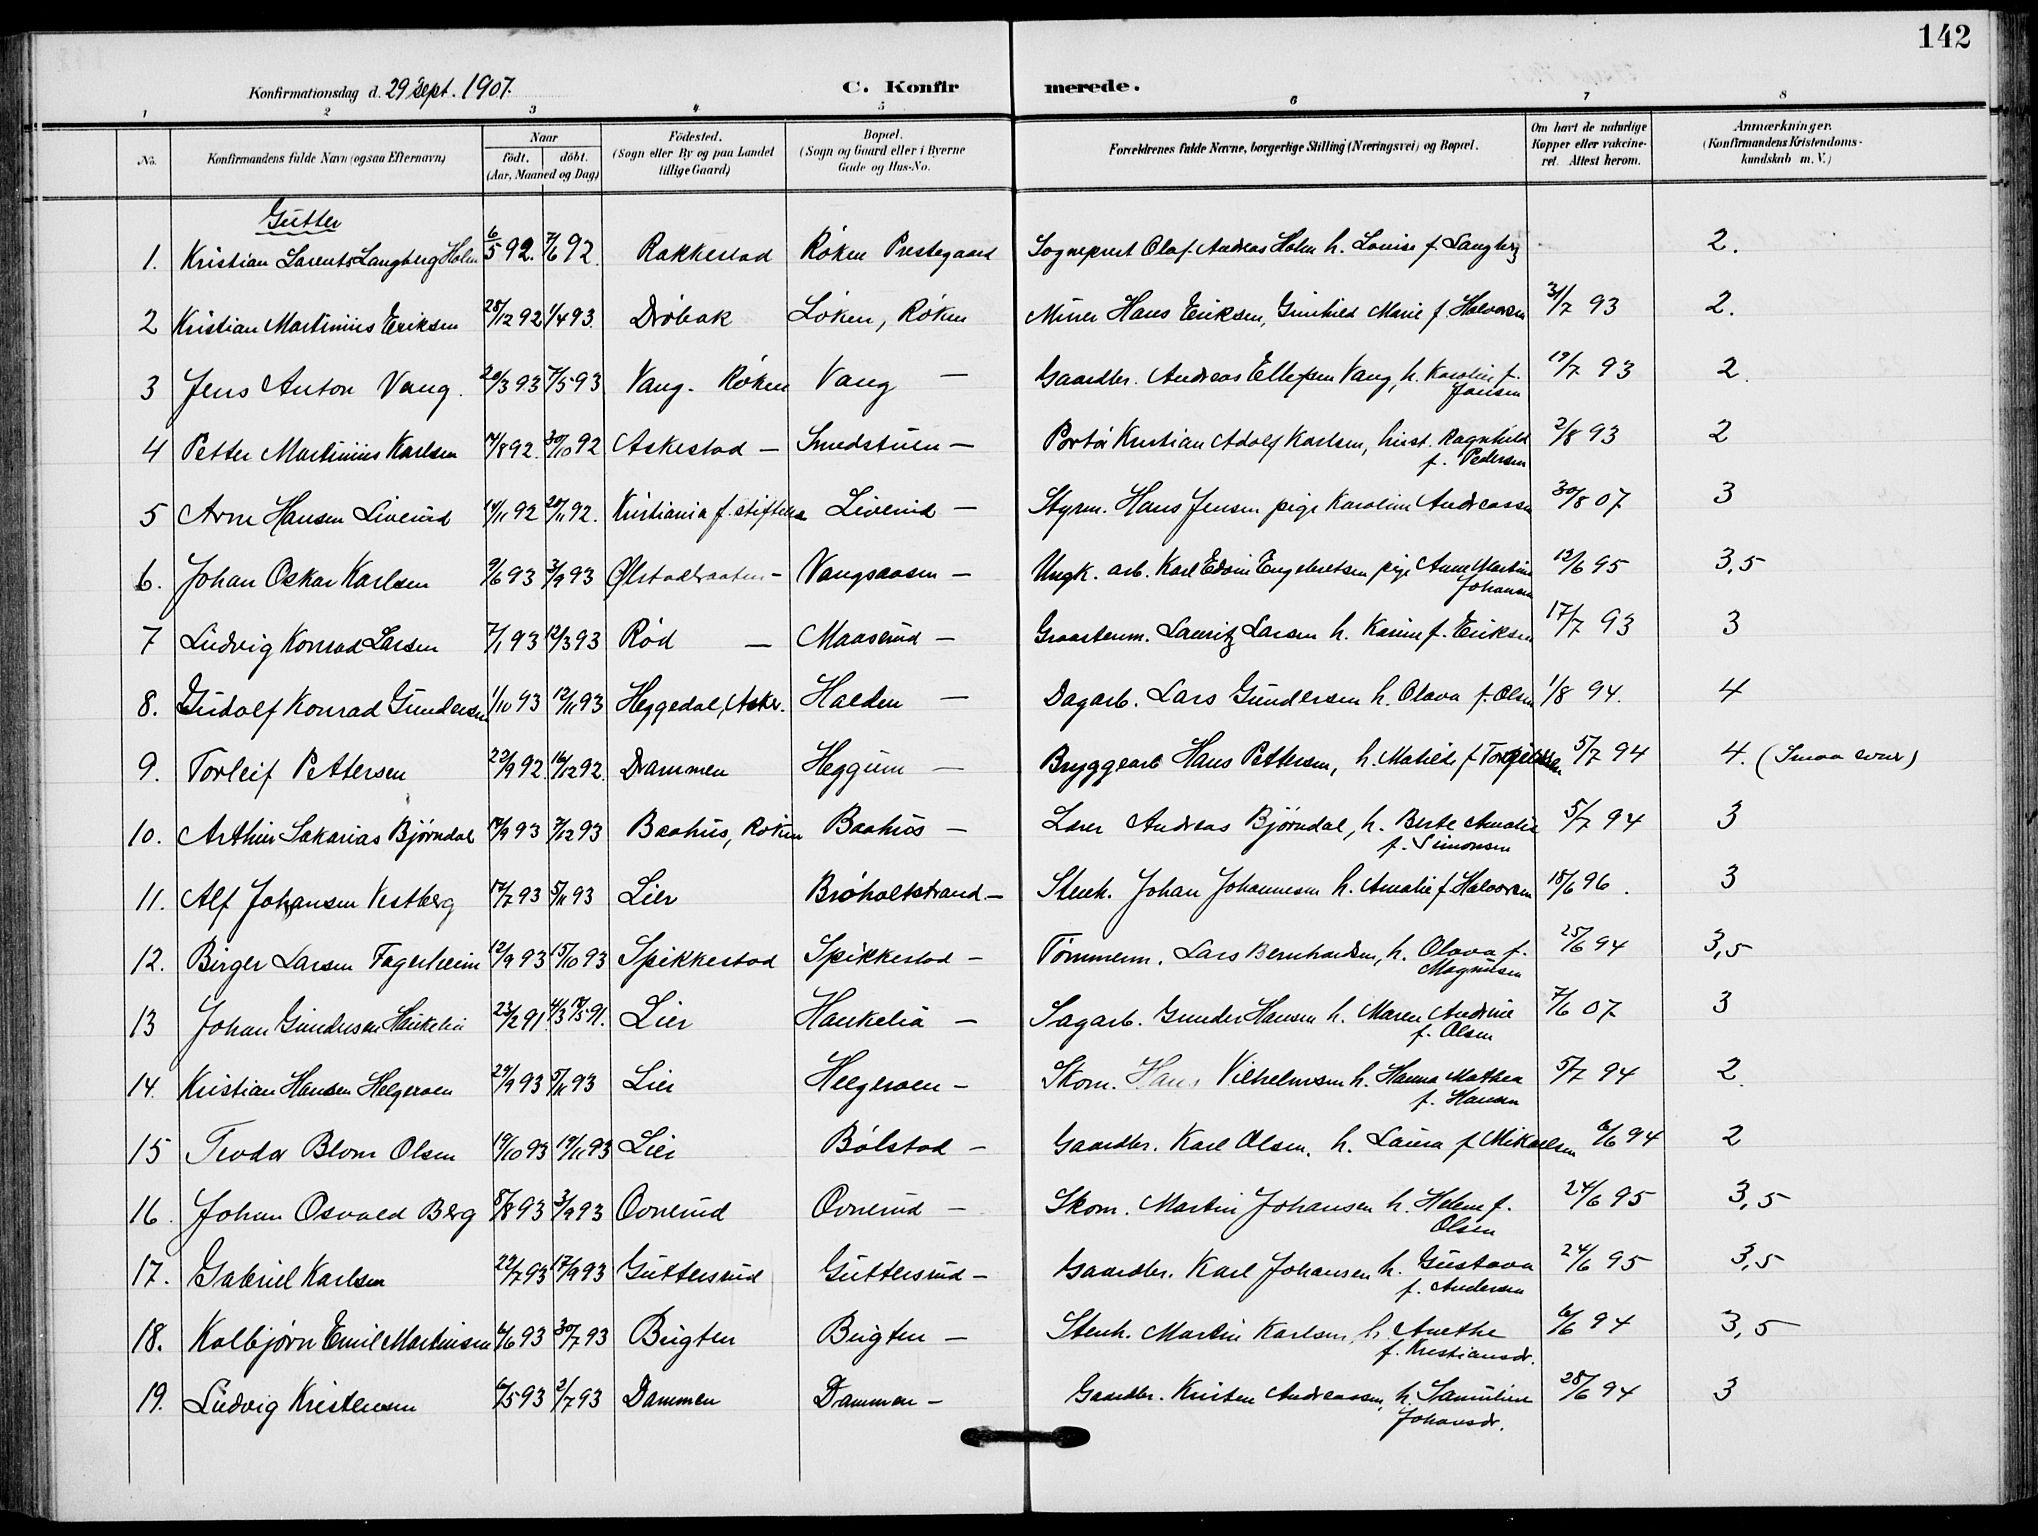 142
Konfirmationsdag d. 29 Sept. 1907. C. Konfir merede.
1 2 3 4 5 6 7 8
No. Konfirmandens fulde Navn (ogsaa Efternavn) Naar födt. döbt. (Aar, Maaned og Dag) Födested. (Sogn eller By og paa Landet tillige Gaard) Bopæl. (Sogn og Gaard eller i Byerne Gade og Hus-No. Forældrenes fulde Navne, borgerlige Stilling (Næringsvei) og Bopæl. Om havt de naturlige Kopper eller vakcineret. Attest herom. Anmærkninger. (Konfirmandens Kristendomskundskab m. V.)
Gutter
1. Kristian Larents Langberg Holm 6/5 92. 7/6 92. Rakkestad Røken Prestegaard Sogneprest Olaf Andreas Holm h. Louise f. Langberg 2.
2 Kristian Martinius Eriksen 28/12 92 1/4 93. Drøbak Løken, Røken Miner Hans Eriksen, Gunhild Marie f. Halvorsen 31/7 93 2.
3 Jens Anton Vang. 20/3 93 7/5 93 Vang. Røken Vang — Gaardbr. Andreas Ellefsen Vang, h. Karoline f. Jonsen 19/7 93 2.
4 Petter Martinius Karlsen 14/8 92. 30/10 92 Askestad — Smedstuen — Portør Kristian Adolf Karlsen, hust. Ragnhild f. Pedersen 2/8 93 2
5 Arne Hansen Liverud 14/11 92 20/11 92. Kristiania f. stiftelse Liverud — Styrm. Hans Jensen pige Karoline Andreassen 30/8 07 3
6. Johan Oskar Karlsen 9/6 93 3/9 93 Ølstadbraaten — Vangsaasen — Ungk. arb. Karl Edvin Engebretsen pige Anne Martine Johansen 12/6 95 3,5
7 Ludvig Konrad Larsen 7/1 93 12/3 93 Rød — Maaserud — Graastenm. Lauritz Larsen h. Karine f. Eriksen 17/7 93 3
8. Gudolf Konrad Gundersen 1/10 93 12/11 93 Heggedal, Asker. Hælden — Dagarb. Lars Gundersen h. Olava f. Olsen 1/8 94. 4
9. Torleif Pettersen 22/9 92. 14/12 92. Drammen Heggum — Bryggearb Hans Pettersen, h. Matilde f 5/7 94 4. (Smaa evner)
10. Arthur Sakarias Bjørndal 14/9 93 7/12 93 Baahus, Røken Baahus — Lærer Andreas Bjørndal, h. Berte Amalie f. Simonsen 5/7 94 3
11. Alf Johansen Vestberg 12/7 93 5/11 93 Lier Brøholtstrand — Stenh. Johan Johannesen h. Amalie f. Halvorsen 18/6 96. 3
12. Birger Larsen Fagerheim 12/9 93 15/10 93 Spikkestad Spikkestad — Tømmerm. Lars Bernhardsen, h. Olava f. Magnusen 25/6 94 3,5
13 Johan Gundersen Haukelia 23/2 91 4/3 17/5 91. Lier Haukelia — Sagarb. Gunder Hansen h. Maren Andrine f. Olsen 7/6 07 3
14. Kristian Hansen Helgeroen 29/9 93 5/11 93 Lier Helgeroen — Skom. Hans Vilhelmsen h. Hanna Mathea f. Hansen 5/7 94 2.
15 Teodor Blom Olsen 19/10 93 19/11 93 Lier Bølstad — Gaardbr. Karl Olsen. h. Laura f Mikaelsen 6/6 94 2
16. Johan Osvald Berg 8/8 93 3/9 93 Ovnerud Ovnerud — Skom. Martin Johansen h. Helene f. Olsen 24/6 95 3,5
17. Gabriel Karlsen 22/7 93 17/9 93 Guttersrud Guttersrud — Gaardbr. Karl Johansen h. Gustava f. Andersen 24/6 95 3,5
18. Kolbjørn Emil Martinsen 6/6 93 30/7 93 Bugten Bugten — Stenh. Martin Karlsen, h. Anethe f. Kristiansdr. 6/6 94 3,5
19. Ludvig Kristensen 6/5 93 2/7 93 Dammen Dammen — Gaardbr. Kristen Andreassen, h. Samuline Johansdr. 28/6 94 3